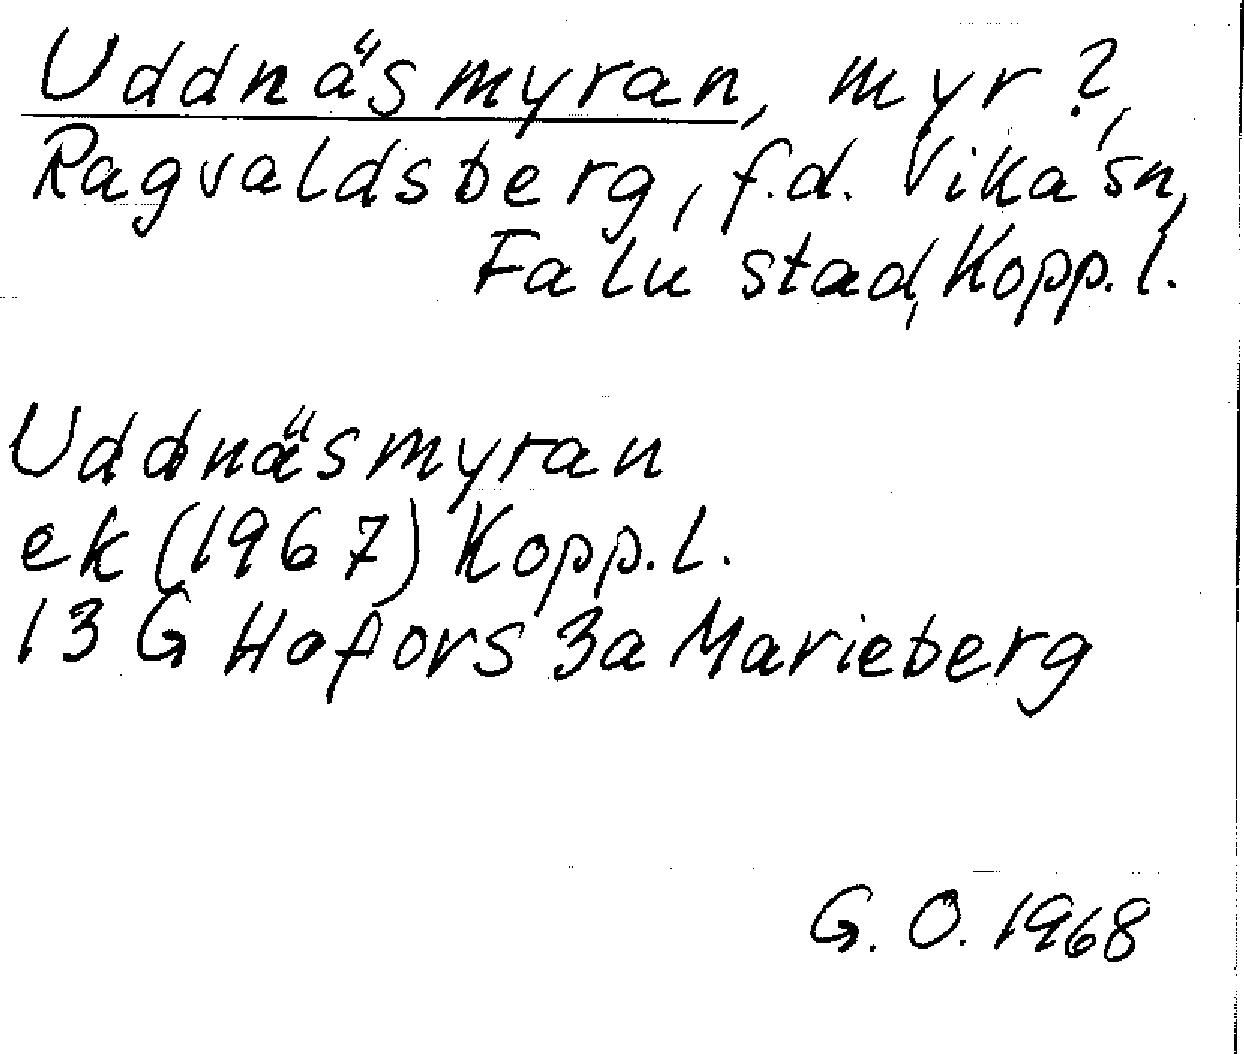 Uddnäsmyran, myr?,
Ragvaldsberg, f.d. Vika sn,
Falu stad, Kopp. l.
Uddnäsmyran
ek (1967) Kopp. l.
13 G Hofors 3a Marieberg
G. O. 1968